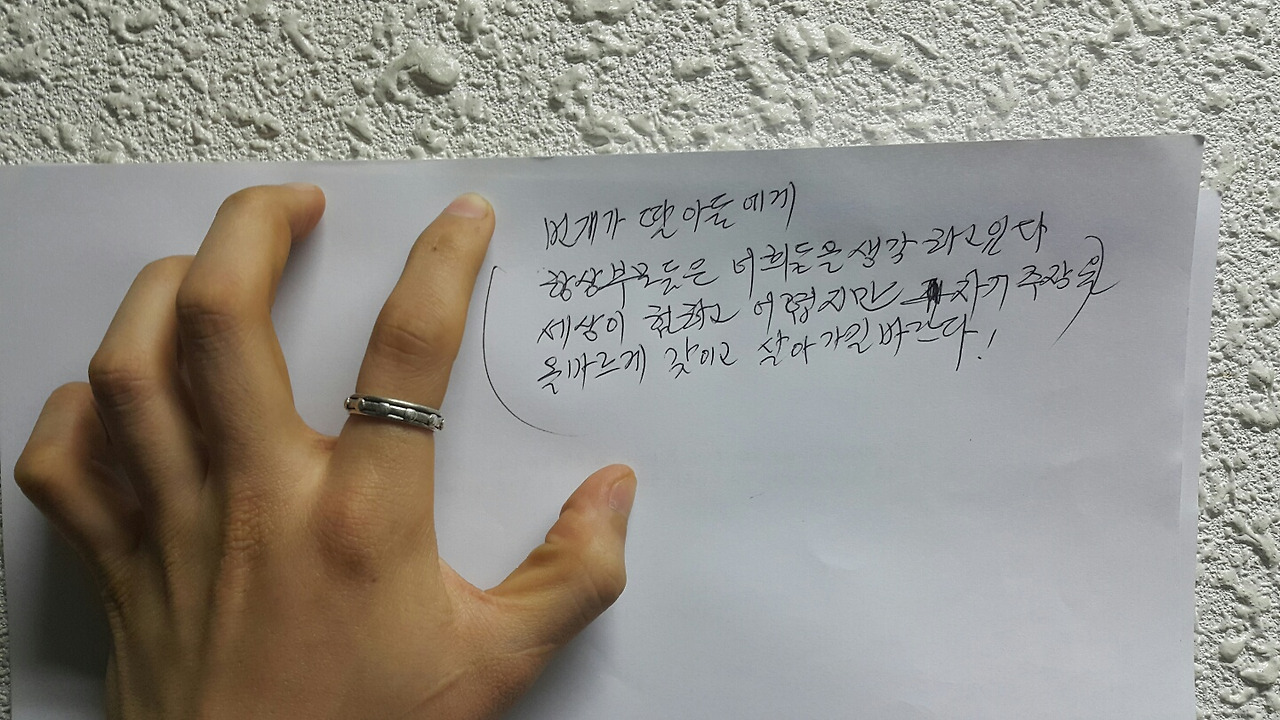 번개가 딸 아들에게
항상 부모들은 너희들을 생각하고 있다
세상이 험하고 어렵지만 자기 주장을
올바르게 갖이고 살아가길 바란다!